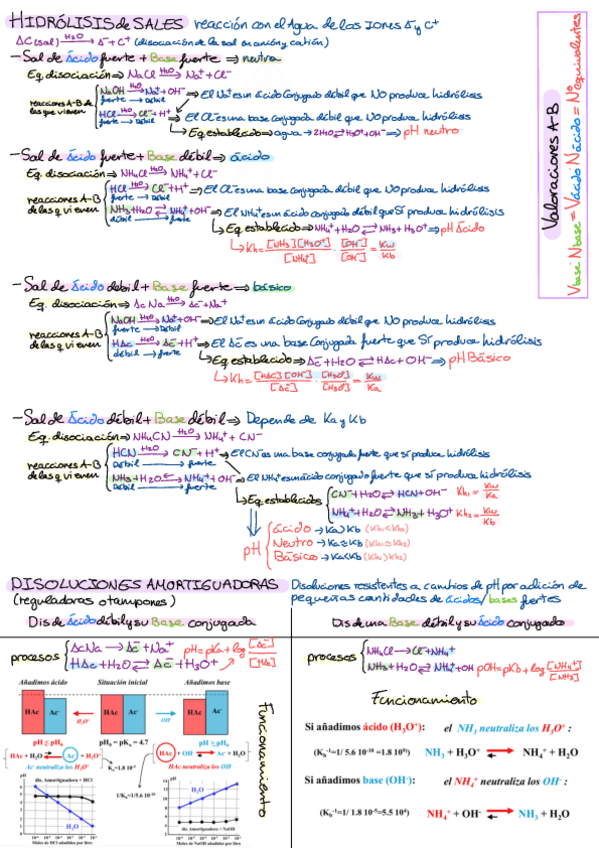 HIDRÓLISIS de SALES reacción con el Agua de los Iones A⁻ y C⁺
AC(sal) H₂O→ A⁻ + C⁺ (disociación de la sal en anión y catión)
- Sal de Ácido fuerte + Base fuerte ⇒ neutra
Eq. disociación ⇒ NaCl H₂O→ Na⁺ + Cl⁻
reacciones A-B de las que vienen
NaOH H₂O→ Na⁺ + OH⁻ ⇒ El Na⁺ es un ácido conjugado débil que NO produce hidrólisis
fuerte → Débil
HCl H₂O→ Cl⁻ + H⁺ ⇒ El Cl⁻ es una base conjugada débil que NO produce hidrólisis
fuerte → Débil
↳ Eq. establecido ⇒ agua → 2H₂O ⇄ H₃O⁺ + OH⁻ ⇒ pH neutro
- Sal de Ácido fuerte + Base débil ⇒ ácido
Eq. disociación ⇒ NH₄Cl H₂O→ NH₄⁺ + Cl⁻
reacciones A-B de las q vienen
HCl H₂O→ Cl⁻ + H⁺ ⇒ El Cl⁻ es una base conjugada débil que NO produce hidrólisis
fuerte → Débil
NH₃ + H₂O ⇄ NH₄⁺ + OH⁻ ⇒ El NH₄⁺ es un ácido conjugado débil que SÍ produce hidrólisis
débil → fuerte
↳ Eq establecido ⇒ NH₄⁺ + H₂O ⇄ NH₃ + H₃O⁺ ⇒ pH ácido
↳ Kh = [NH₃][H₃O⁺] / [NH₄⁺] · [OH⁻] / [OH⁻] = Kw / Kb
- Sal de Ácido débil + Base fuerte ⇒ básico
Eq. disociación ⇒ AcNa H₂O→ Ac⁻ + Na⁺
reacciones A-B de las q vienen
NaOH H₂O→ Na⁺ + OH⁻ ⇒ El Na⁺ es un ácido Conjugado débil que NO produce hidrólisis
fuerte → Débil
HAc H₂O→ Ac⁻ + H⁺ ⇒ El Ac⁻ es una base Conjugada fuerte que SÍ produce hidrólisis
débil → fuerte
↳ Eq. establecido ⇒ Ac⁻ + H₂O ⇄ HAc + OH⁻ ⇒ pH Básico
↳ Kh = [HAc][OH⁻] / [Ac⁻] · [H₃O⁺] / [H₃O⁺] = Kw / Ka
- Sal de Ácido débil + Base débil ⇒ Depende de Ka y Kb
Eq. disociación ⇒ NH₄CN H₂O→ NH₄⁺ + CN⁻
reacciones A-B de las q vienen
HCN H₂O→ CN⁻ + H⁺ ⇒ El CN⁻ es una base conjugada fuerte que sí produce hidrólisis
Débil → fuerte
NH₃ + H₂O ⇄ NH₄⁺ + OH⁻ ⇒ El NH₄⁺ es un ácido conjugado fuerte que sí produce hidrólisis
Débil → fuerte
↳ Eq. establecidos
CN⁻ + H₂O ⇄ HCN + OH⁻ Kh₁ = Kw / Ka
NH₄⁺ + H₂O ⇄ NH₃ + H₃O⁺ Kh₂ = Kw / Kb
pH
ácido → Ka > Kb (Kh₁ < Kh₂)
Neutro → Ka ≈ Kb (Kh₁ ≈ Kh₂)
Básico → Ka < Kb (Kh₁ > Kh₂)
Valoraciones A-B
V base · N base = V ácido · N ácido = Nº equivalentes
DISOLUCIONES AMORTIGUADORAS
(reguladoras o tampones)
Disoluciones resistentes a cambios de pH por adición de
pequeñas cantidades de ácidos/bases fuertes
Dis de ácido débil y su Base conjugada
procesos
AcNa → Ac⁻ + Na⁺
HAc + H₂O ⇄ Ac⁻ + H₃O⁺
pH = pKa + log [Ac⁻] / [HAc]
Añadimos ácido Situación inicial Añadimos base
HAc Ac⁻ H₃O⁺ HAc Ac⁻ OH⁻ HAc Ac⁻
pH ≤ pH₀ pH₀ = pKₐ = 4.7 pH ≥ pH₀
HAc + H₂O Ac⁻ + H₃O⁺ HAc + OH⁻ Ac⁻ + H₂O
Ac⁻ neutraliza los H₃O⁺ Kₐ=1.8 10⁻⁵ HAc neutraliza los OH⁻
1/K_b=1/5.6 10⁻¹⁰
Funcionamiento
pH dis. Amortiguadora + HCl
H₂O
Moles de HCl añadidos por litro
pH
H₂O
dis. Amortiguadora + NaOH
Moles de NaOH añadidos por litro
Dis de una Base débil y su ácido conjugado
procesos
NH₄Cl → Cl⁻ + NH₄⁺
NH₃ + H₂O ⇄ NH₄⁺ + OH⁻
pOH = pKb + log [NH₄⁺] / [NH₃]
Funcionamiento
Si añadimos ácido (H₃O⁺): el NH₃ neutraliza los H₃O⁺ :
(K_h⁻¹=1/ 5.6 10⁻¹⁰ =1.8 10⁹) NH₃ + H₃O⁺ ⇄ NH₄⁺ + H₂O
Si añadimos base (OH⁻): el NH₄⁺ neutraliza los OH⁻ :
(K_b⁻¹=1/ 1.8 10⁻⁵=5.5 10⁴) NH₄⁺ + OH⁻ ⇄ NH₃ + H₂O